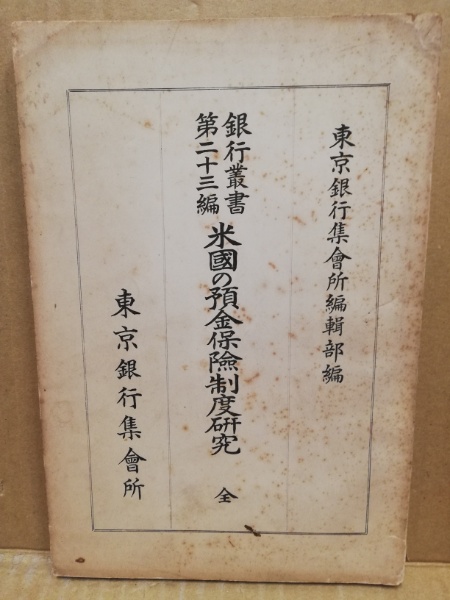 東京銀行集會所編輯部編
銀行叢書
第二十三編
米國の預金保險制度研究 全
東京銀行集會所